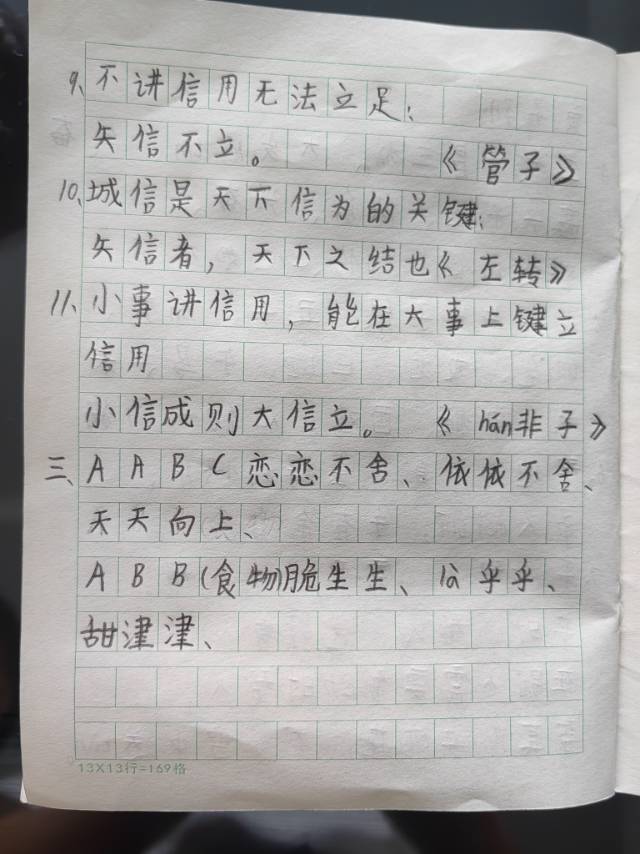 9、不讲信用无法立足；
失信不立。 《管子》
10、城信是天下信为的关键；
失信者，天下之结也《左转》
11、小事讲信用，能在大事上键立
信用
小信成则大信立。 《hán非子》
三、AABC恋恋不舍、依依不舍、
天天向上、
ABB(食物)脆生生、公乎乎、
甜津津、
13×13行=169格